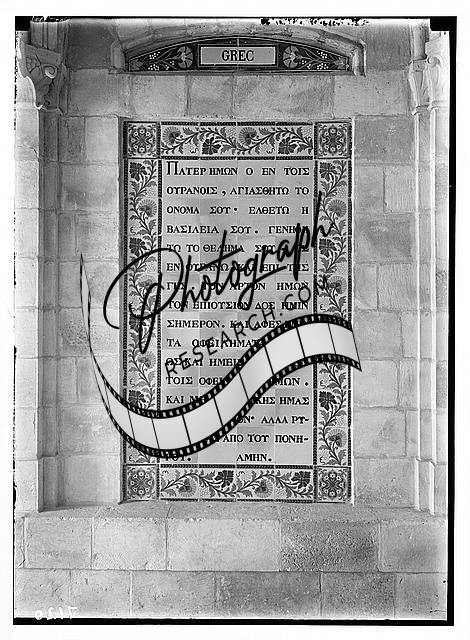 GREC
ΠΑΤΕΡ ΗΜΩΝ Ο ΕΝ ΤΟΙΣ
ΟΥΡΑΝΟΙΣ, ΑΓΙΑΣΘΗΤΩ ΤΟ
ΟΝΟΜΑ ΣΟΥ· ΕΛΘΕΤΩ Η
ΒΑΣΙΛΕΙΑ ΣΟΥ. ΓΕΝΗ
ΤΩ ΤΟ ΘΕΛΗΜΑ ΣΟΥ
ΕΝ ΟΥΡΑΝΩ ΚΑΙ ΕΠΙ ΤΗΣ
ΤΟΝ ΑΡΤΟΝ ΗΜΩΝ
ΤΟΝ ΕΠΙΟΥΣΙΟΝ ΔΟΣ ΗΜΙΝ
ΣΗΜΕΡΟΝ. ΚΑΙ ΑΦΕΣ
ΤΑ ΟΦΕΙΛΗΜΑΤΑ
ΩΣ ΚΑΙ ΗΜΕΙΣ
ΤΟΙΣ ΟΦΕΙ ΜΩΝ.
ΚΑΙ ΜΗ ΚΗΣ ΗΜΑΣ
ΟΝ· ΑΛΛΑ ΡΥ-
ΑΠΟ ΤΟΥ ΠΟΝΗ-
ΡΟΥ. ΑΜΗΝ.
Photograph
RESEARCH.COM
7120